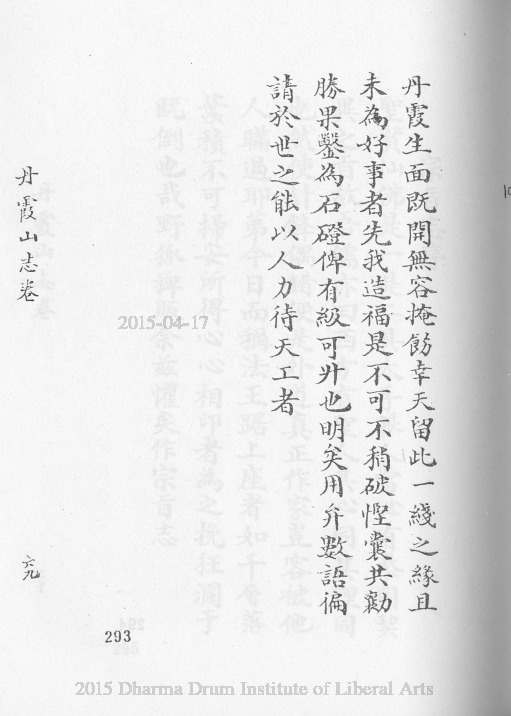 丹霞生面既開無容掩飭幸天留此一綫之緣且
未為好事者先我造福是不可不稍破慳囊共勷
勝果鑿為石磴俾有級可升也明矣用弁數語徧
請於世之能以人力待天工者
丹霞山志卷
六九
293
2015-04-17
2015 Dharma Drum Institute of Liberal Arts